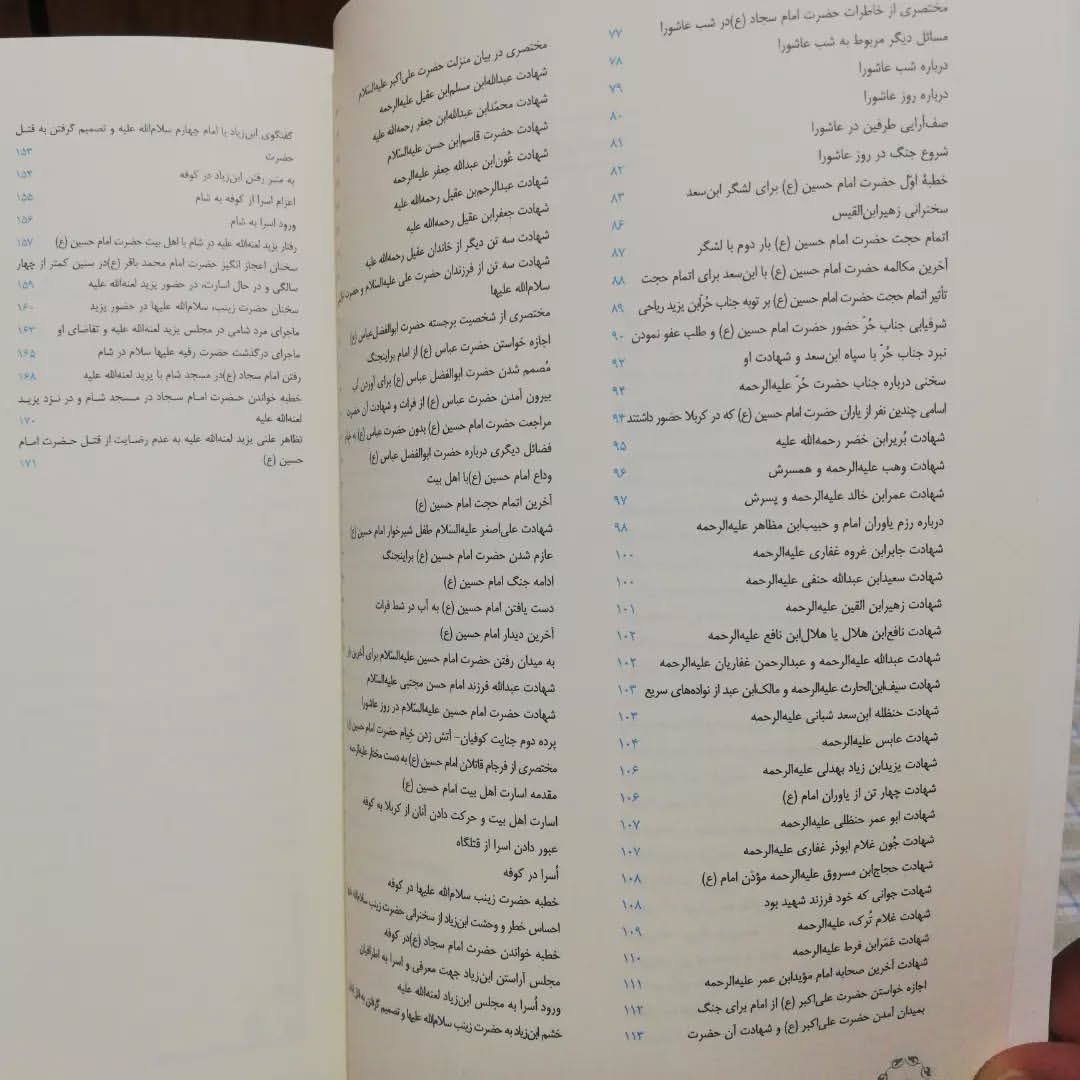 مختصری از خاطرات حضرت امام سجاد (ع)در شب عاشورا ۷۷
مسائل دیگر مربوط به شب عاشورا ۷۸
درباره شب عاشورا ۷۹
درباره روز عاشورا ۸۰
صف‌آرایی طرفین در عاشورا ۸۱
شروع جنگ در روز عاشورا ۸۲
خطبهٔ اوّل حضرت امام حسین (ع) برای لشگر ابن‌سعد ۸۳
سخنرانی زهیرابن‌القیس ۸۶
اتمام حجت حضرت امام حسین (ع) بار دوم با لشگر ۸۷
آخرین مکالمه حضرت امام حسین (ع) با ابن‌سعد برای اتمام حجت ۸۸
تأثیر اتمام حجت حضرت امام حسین (ع) بر توبه جناب حُرّابن یزید ریاحی ۸۹
شرفیابی جناب حُرّ حضور حضرت امام حسین (ع) و طلب عفو نمودن ۹۰
نبرد جناب حُرّ با سپاه ابن‌سعد و شهادت او ۹۲
سخنی درباره جناب حضرت حُرّ علیه‌الرحمه ۹۴
اسامی چندین نفر از یاران حضرت امام حسین (ع) که در کربلا حضور داشتند ۹۴
شهادت بُریرابن خضر رحمه‌الله علیه ۹۵
شهادت وهب علیه‌الرحمه و همسرش ۹۶
شهادت عمرابن خالد علیه‌الرحمه و پسرش ۹۷
درباره رزم یاوران امام و حبیب‌ابن مظاهر علیه‌الرحمه ۹۸
شهادت جابرابن غروه غفاری علیه‌الرحمه ۱۰۰
شهادت سعیدابن عبدالله حنفی علیه‌الرحمه ۱۰۰
شهادت زهیرابن القین علیه‌الرحمه ۱۰۱
شهادت نافع‌ابن هلال یا هلال‌ابن نافع علیه‌الرحمه ۱۰۲
شهادت عبدالله علیه‌الرحمه و عبدالرحمن غفاریان علیه‌الرحمه ۱۰۲
شهادت سیف‌ابن‌الحارث علیه‌الرحمه و مالک‌ابن عبد از نواده‌های سریع ۱۰۳
شهادت حنظله ابن‌سعد شبانی علیه‌الرحمه ۱۰۳
شهادت عابس علیه‌الرحمه ۱۰۴
شهادت یزیدابن زیاد بهدلی علیه‌الرحمه ۱۰۶
شهادت چهار تن از یاوران امام (ع) ۱۰۶
شهادت ابو عمر حنظلی علیه‌الرحمه ۱۰۷
شهادت جُون غلام ابوذر غفاری علیه‌الرحمه ۱۰۷
شهادت حجاج‌ابن مسروق علیه‌الرحمه مؤذن امام (ع) ۱۰۸
شهادت جوانی که خود فرزند شهید بود ۱۰۸
شهادت غلام تُرک، علیه‌الرحمه ۱۰۹
شهادت عَمَرابن فرط علیه‌الرحمه ۱۱۰
شهادت آخرین صحابه امام مؤیدابن عمر علیه‌الرحمه ۱۱۱
اجازه خواستن حضرت علی‌اکبر (ع) از امام برای جنگ ۱۱۲
بمیدان آمدن حضرت علی‌اکبر (ع) و شهادت آن حضرت ۱۱۳
مختصری در بیان منزلت حضرت علی‌اکبر علیه‌السّلام
شهادت عبدالله‌ابن مسلم‌ابن عقیل علیه‌الرحمه
شهادت محمّدابن عبدالله‌ابن جعفر رحمه‌الله علیه
شهادت حضرت قاسم‌ابن حسن علیه‌السّلام
شهادت عُون‌ابن عبدالله جعفر علیه‌الرحمه
شهادت عبدالرحم‌بن عقیل رحمه‌الله علیه
شهادت جعفرابن عقیل رحمه‌الله علیه
شهادت سه تن دیگر از خاندان عقیل رحمه‌الله علیه
شهادت سه تن از فرزندان حضرت علی علیه‌السّلام و حضرت
سلام‌الله علیها
مختصری از شخصیت برجسته حضرت ابوالفضل‌عباس (ع)
اجازه خواستن حضرت عباس (ع) از امام براینجنگ
مُصمم شدن حضرت ابوالفضل عباس (ع) برای آوردن آب
بیرون آمدن حضرت عباس (ع) از فرات و شهادت آن حضرت
مراجعت حضرت امام حسین (ع) بدون حضرت عباس (ع) به
فضائل دیگری درباره حضرت ابوالفضل عباس (ع)
وداع امام حسین (ع)با اهل بیت
آخرین اتمام حجت امام حسین (ع)
شهادت علی‌اصغر علیه‌السّلام طفل شیرخوار امام حسین (ع)
عازم شدن حضرت امام حسین (ع) براینجنگ
ادامه جنگ امام حسین (ع)
دست یافتن امام حسین (ع) به آب در شط فرات
آخرین دیدار امام حسین (ع)
به میدان رفتن حضرت امام حسین علیه‌السّلام برای آخرین
شهادت عبدالله فرزند امام حسن مجتبی علیه‌السّلام
شهادت حضرت امام حسین علیه‌السّلام در روز عاشورا
پرده دوم جنایت کوفیان- آتش زدن خِیام حضرت امام حسین (ع)
مختصری از فرجام قاتلان امام حسین (ع) به دست مختار علیه‌الرحمه
مقدمه اسارت اهل بیت امام حسین (ع)
اسارت اهل بیت و حرکت دادن آنان از کربلا به کوفه
عبور دادن اسرا از قتلگاه
اُسرا در کوفه
خطبه حضرت زینب سلام‌الله علیها در کوفه
احساس خطر و وحشت ابن‌زیاد از سخنرانی حضرت زینب سلام‌الله
خطبه خواندن حضرت امام سجاد (ع)در کوفه
مجلس آراستن ابن‌زیاد جهت معرفی و اسرا به اطرافیان
ورود اُسرا به مجلس ابن‌زیاد لعنه‌الله علیه
خشم ابن‌زیاد به حضرت زینب سلام‌الله علیها و تصمیم گرفتن به
گفتگوی ابن‌زیاد با امام چهارم سلام‌الله علیه و تصمیم گرفتن به قتل
حضرت ۱۵۳
به منبر رفتن ابن‌زیاد در کوفه ۱۵۴
اعزام اسرا از کوفه به شام ۱۵۵
ورود اسرا به شام ۱۵۶
رفتار یزید لعنه‌الله علیه در شام با اهل بیت حضرت امام حسین (ع) ۱۵۷
سخنان اعجاز انگیز حضرت امام محمد باقر (ع)در سنین کمتر از چهار
سالگی و در حال اسارت، در حضور یزید لعنه‌الله علیه ۱۵۹
سخنان حضرت زینب، سلام‌الله علیها در حضور یزید ۱۶۰
ماجرای مرد شامی در مجلس یزید لعنه‌الله علیه و تقاضای او ۱۶۳
ماجرای درگذشت حضرت رقیه علیها سلام در شام ۱۶۵
رفتن امام سجاد (ع)در مسجد شام با یزید لعنه‌الله علیه ۱۶۸
خطبه خواندن حضرت امام سجاد در مسجد شام و در نزد یزید
لعنه‌الله علیه ۱۷۰
تظاهر علنی یزید لعنه‌الله علیه به عدم رضایت از قتل حضرت امام
حسین (ع) ۱۷۱